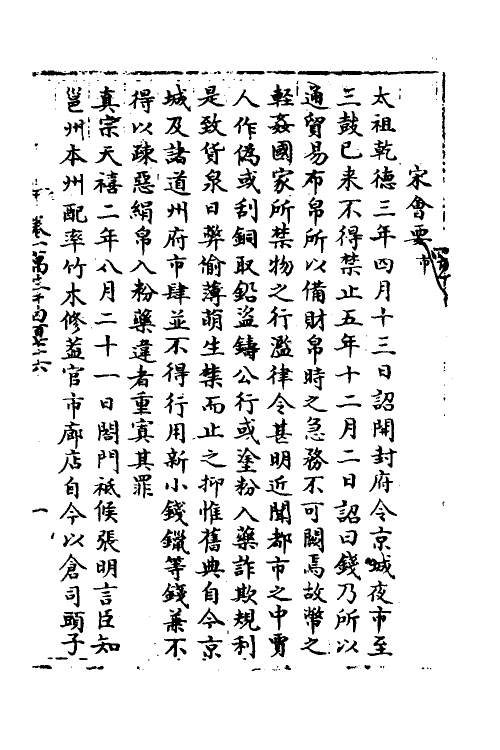 宋會要
市
太祖乾德三年四月十三日詔開封府令京城夜市至
三鼓已來不得禁止五年十二月二日詔曰錢乃所以
通貿易布帛所以備財帛時之急務不可闕焉故幣之
輕姦國家所禁物之行濫律令甚明近聞都市之中賈
人作偽或刮銅取鉛盜鑄公行或塗粉入藥詐欺規利
是致貨泉日弊偷薄萌生禁而止之抑惟舊典自今京
城及諸道州府市肆並不得行用新小錢鑞等錢兼不
得以疎惡絹帛入粉藥違者重寘其罪
真宗天禧二年八月二十一日閤門祗候張明言臣知
邕州本州配率竹木修葢官市廊店自今以倉司頭子
卷一萬三千四百二十六
一